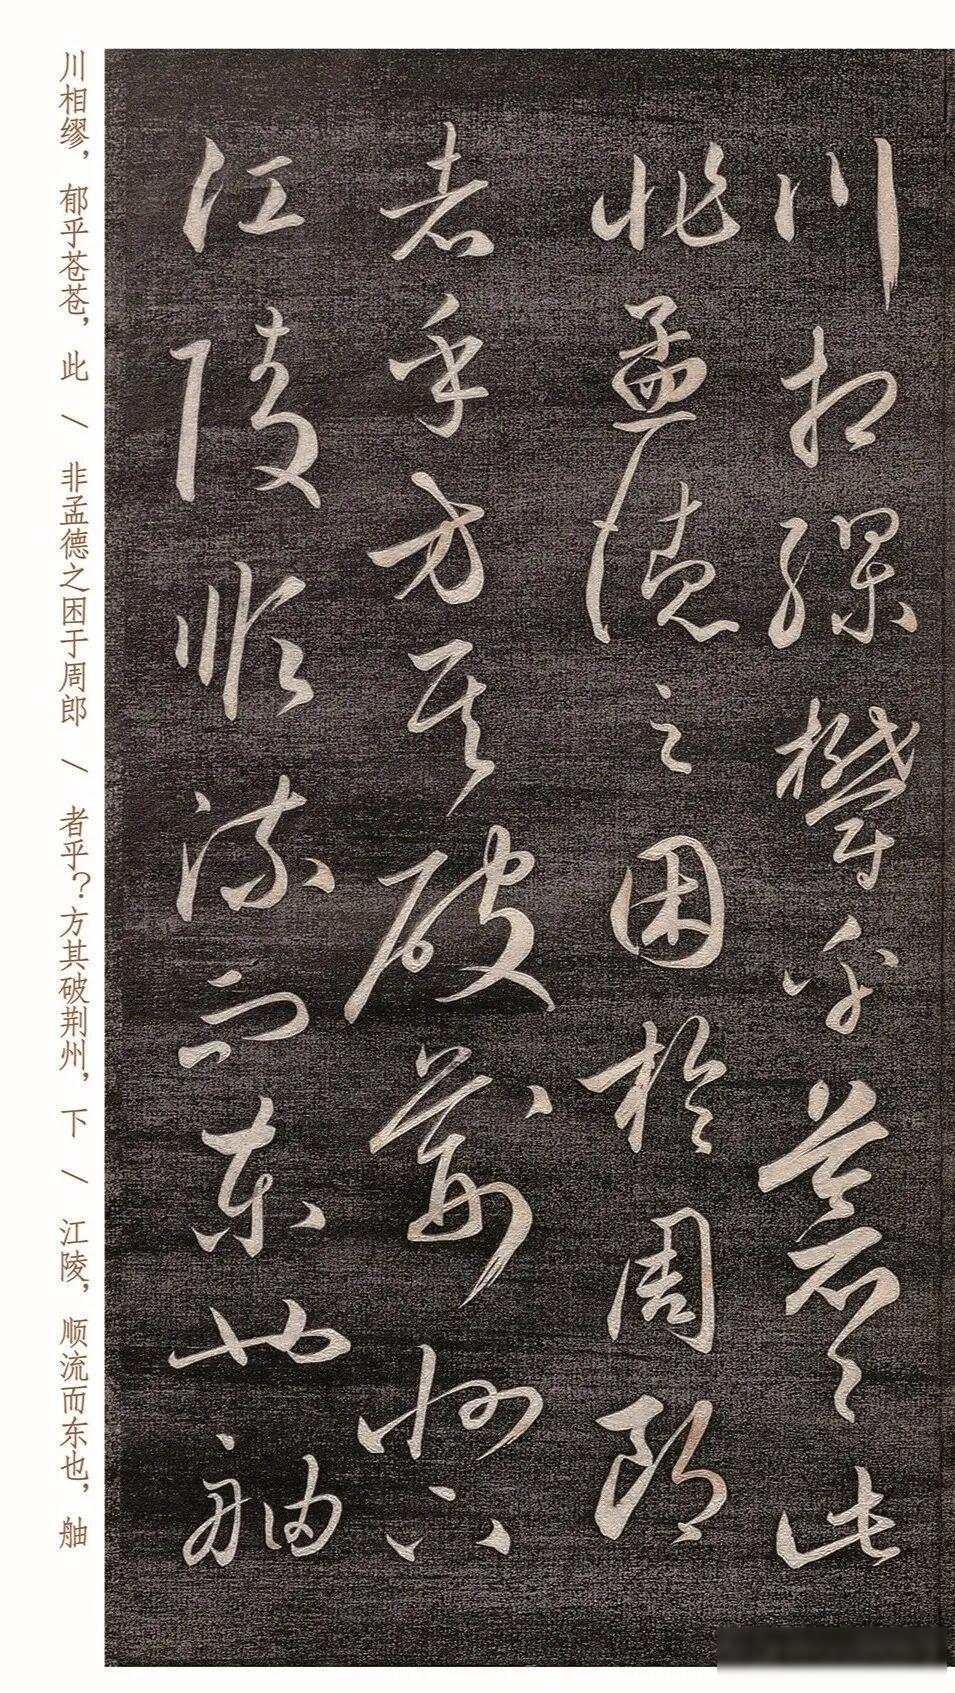 川相繆欝乎蒼々此
非孟德之困於周郎
者乎方其破荊州下
江陵順流而東也舳
川相缪，郁乎苍苍，此 / 非孟德之困于周郎 / 者乎？方其破荆州，下 / 江陵，顺流而东也，舳